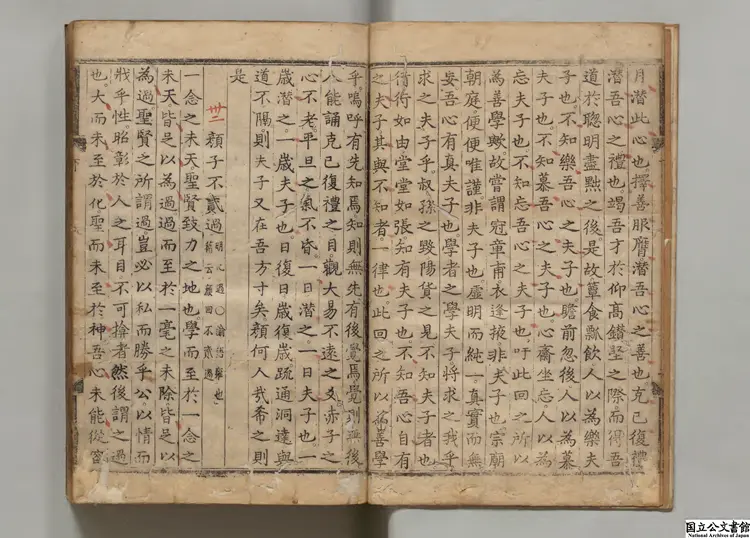 月潜此心也擇善服膺潜吾心之善也克己復禮
潜吾心之禮也竭吾才於仰高鑚堅之際而得吾
道於聰明盡黜之後是故簞食瓢飮人以為樂夫
子也不知樂吾心之夫子也瞻前忽後人以為慕
夫子也不知慕吾心之夫子也心齋坐忘人以為
忘夫子也不知忘吾心之夫子也吁此回之所以
為善學歟故嘗謂冠章甫衣逢掖非夫子也宗朝
朝庭便便唯謹非夫子也虛明而純一真實而無
妄吾心有真夫子也學者之學夫子將求之我乎
求之夫子乎叔孫之毀陽貨之見不知夫子者也
彳行如由堂堂如張知有夫子也不知吾心自有
之夫子其與不知者一律也此回之所以為善學
乎嗚呼有先知焉知則無先有後覺焉覺則無後
人能誦克己復禮之目觀大易不遠之爻赤子之
心不老平旦之氣不昏一日潜之一日夫子也一
歲潜之一歲夫子也日復日歲復歲疏通洞達與
道不隔則夫子又在吾方寸矣顏何人哉希之則
是
卅二 顏子不貳過
一念之未天聖賢致力之地也學而至於一念之
未天皆足以為過過而至於一毫之未除皆足以
為過聖賢之所謂過豈必以私而勝乎公以情而
戕乎性昭彰於人之耳目不可揜者然後謂之過
也大而未至於化聖而未至於神吾心未能從容
国立公文書館
National Archives of Japan